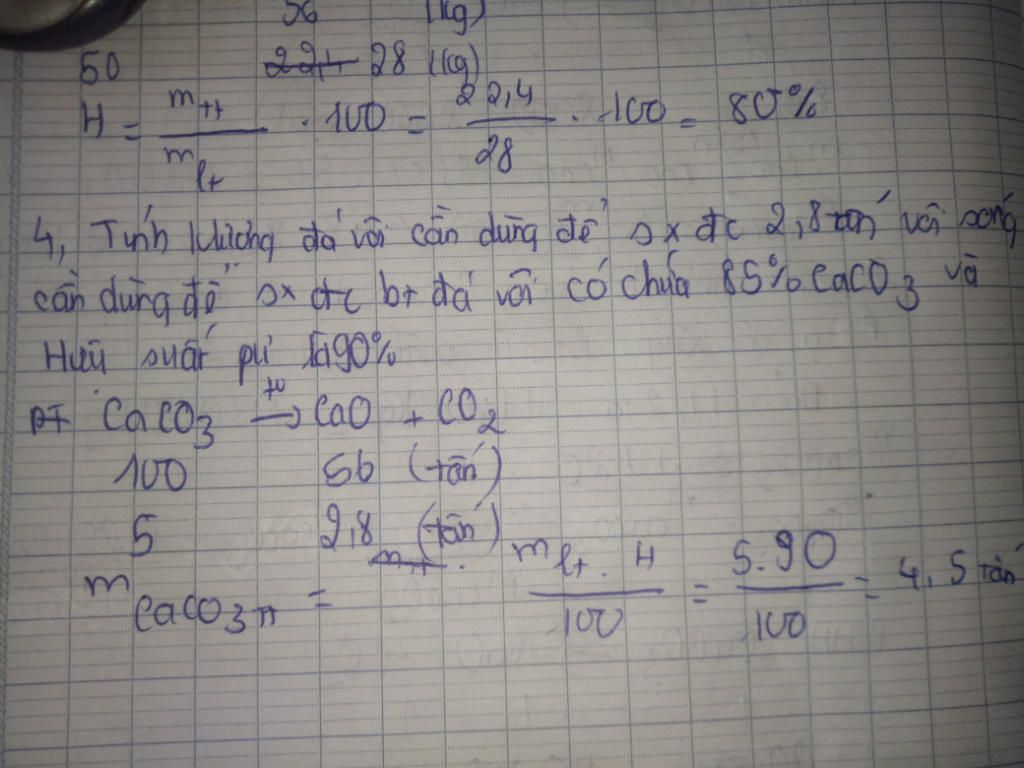 56 (kg)
50 22,4 28 (kg)
H = mtt / mlt . 100 = 22,4 / 28 . 100 = 80%
4, Tính lượng đá vôi cần dùng để sx đc 2,8 tấn vôi sống
cần dùng để sx đc bt đá vôi có chứa 85% CaCO3 và
Hiệu suất pứ là 90%
PT CaCO3 t0→ CaO + CO2
100 56 (tấn)
5 2,8 (tấn)
mCaCO3 tt = mlt . H / 100 = 5.90 / 100 = 4,5 tấn